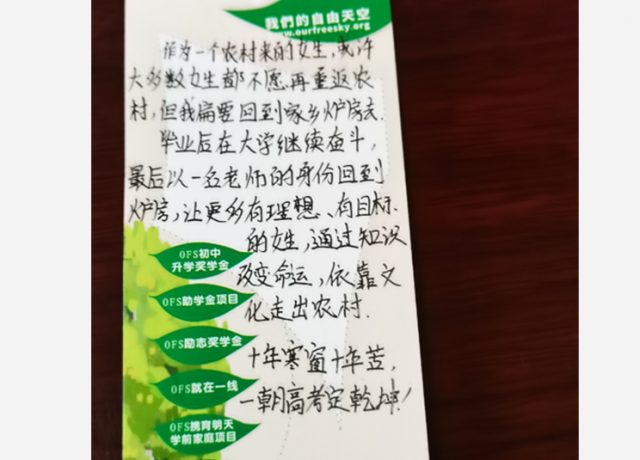 我們的自由天空
www.ourfreesky.org
作为一个农村来的女生，或许
大多数女生都不愿再重返农
村，但我偏要回到家乡炉房去.
毕业后在大学继续奋斗，
最后以一名老师的身份回到
炉房，让更多有理想、有目标
的女生，通过知识
改变命运，依靠文
化走出农村.
十年寒窗十年苦，
一朝高考定乾坤！
OFS初中
升学奖学金
OFS助学金项目
OFS励志奖学金
OFS就在一线
OFS携育明天
学前家庭项目